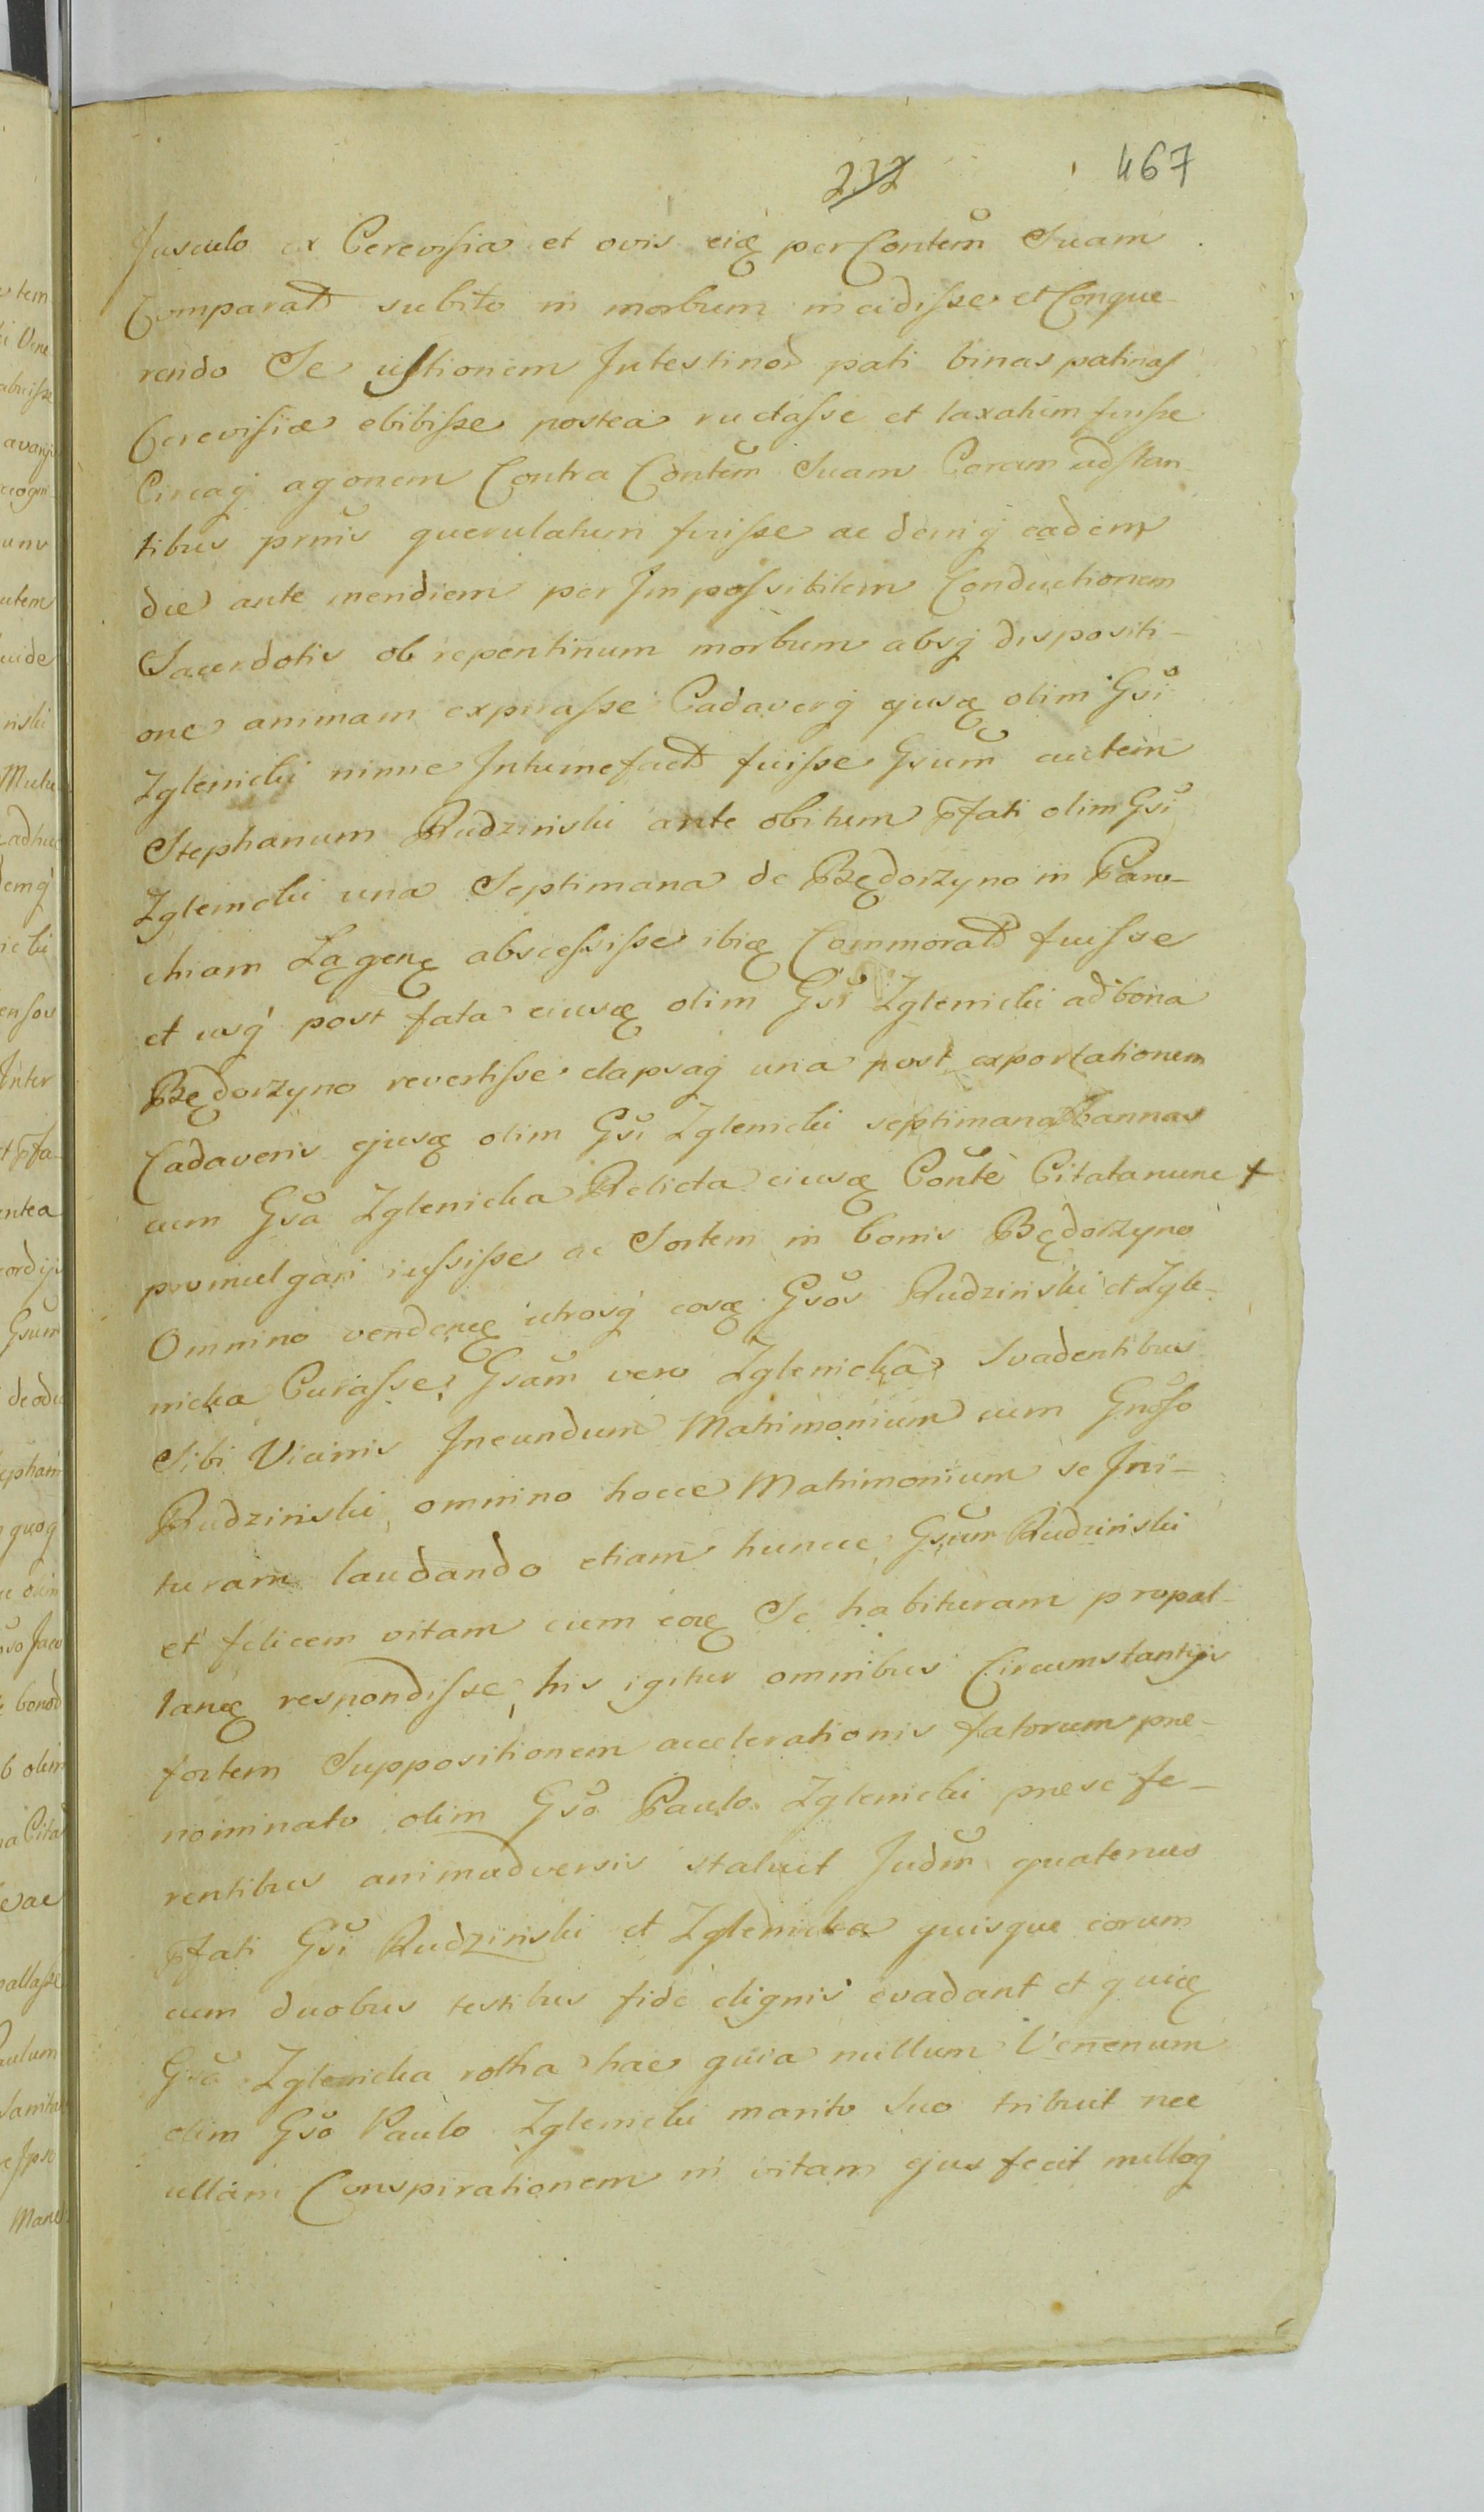 232 467
Jusculo ex Cerevisia et ovis eidę per Contem̃ Suam
Comparatã subito in morbum incidisse et Conque-
rendo Se ustionem Intestinoꝝ pati binas patinas
Cerevisiæ ebibisse postea ructasse et laxatum fuisse
Circaq̃ agonem Contra Contem̃ Suam Coram adstan-
tibus prm̃is querulatum fuisse ac demq̃ eadem
die ante meridiem per Impossibilem Conductionem
Sacerdotis ob repentinum morbum absq̃ dispositi-
one animam expirasse Cadaverq̃ ejusdę olim Gsi
Zglenicki nimie Intumefactũ fuisse Gsum autem
Stephanum Rudzinski ante obitum Pfati olim Gsi
Zglenicki una Septimana de Będorzyno in Paro-
chiam Łęgenę abscessisse ibidę Commoratũ fuisse
et usq̃ post fata eiusdę olim Gsi Zglenicki ad bona
Będorzyno revertisse elapsaq̃ una post exportationem
Cadaveris ejusdę olim Gsi Zglenicki septimana Bannas
cum Gsa Zglenicka Relicta eiusdę Conte Citata nunc +
promulgari iussisse ac Sortem in bonis Będorzyno
Omnino venderę utrosq̃ eosdę Gsos Rudzinski et Zgle-
nicka Curasse, Gsam vero Zglenicka, Svadentibus
Sibi Vicinis Ineundum Matrimonium cum Gnoso
Rudzinski, omnino hocce Matrimonium se Ini-
turam laudando etiam huncce Gsum Rudzinski
et felicem vitam cum eodę Se habituram propal-
lanę respondisse, his igitur omnibus Circumstantijs
fortem Suppositionem accelerationis fatorum præ-
nominato olim Gso Paulo Zglenicki præ se fe-
rentibus animadversis statuit Judm̃ quatenus
Pfati Gsi Rudzinski et Zglenicka quisque eorum
cum duobus testibus fide dignis evadant et quidę
Gsa Zglenicka rotha hac quia nullum Venenum
olim Gso Paulo Zglenicki marito Suo tribuit nec
ullam Conspirationem in vitam ejus fecit nulloq̃